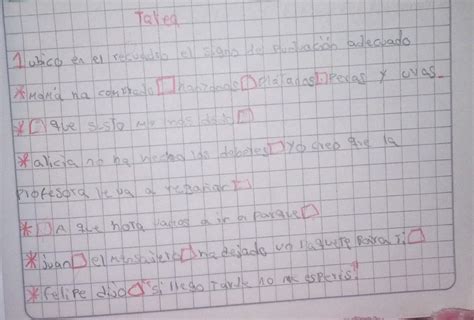 Tarea
1 ubico en el recuadro el signo de puntuación adecuado
* Mamá ha comprado □ manzanas □ plátanos □ Peras y uvas.
* □ que susto me has dado □
* alicia no ha hecho los deberes □ yo creo que la
profesora le va a regañar □
* □ A que hora vamos a ir a parque □
* juan □ el mensajero □ ha dejado un paquete para ti □
* felipe dijo □ "si llego tarde no me esperes"